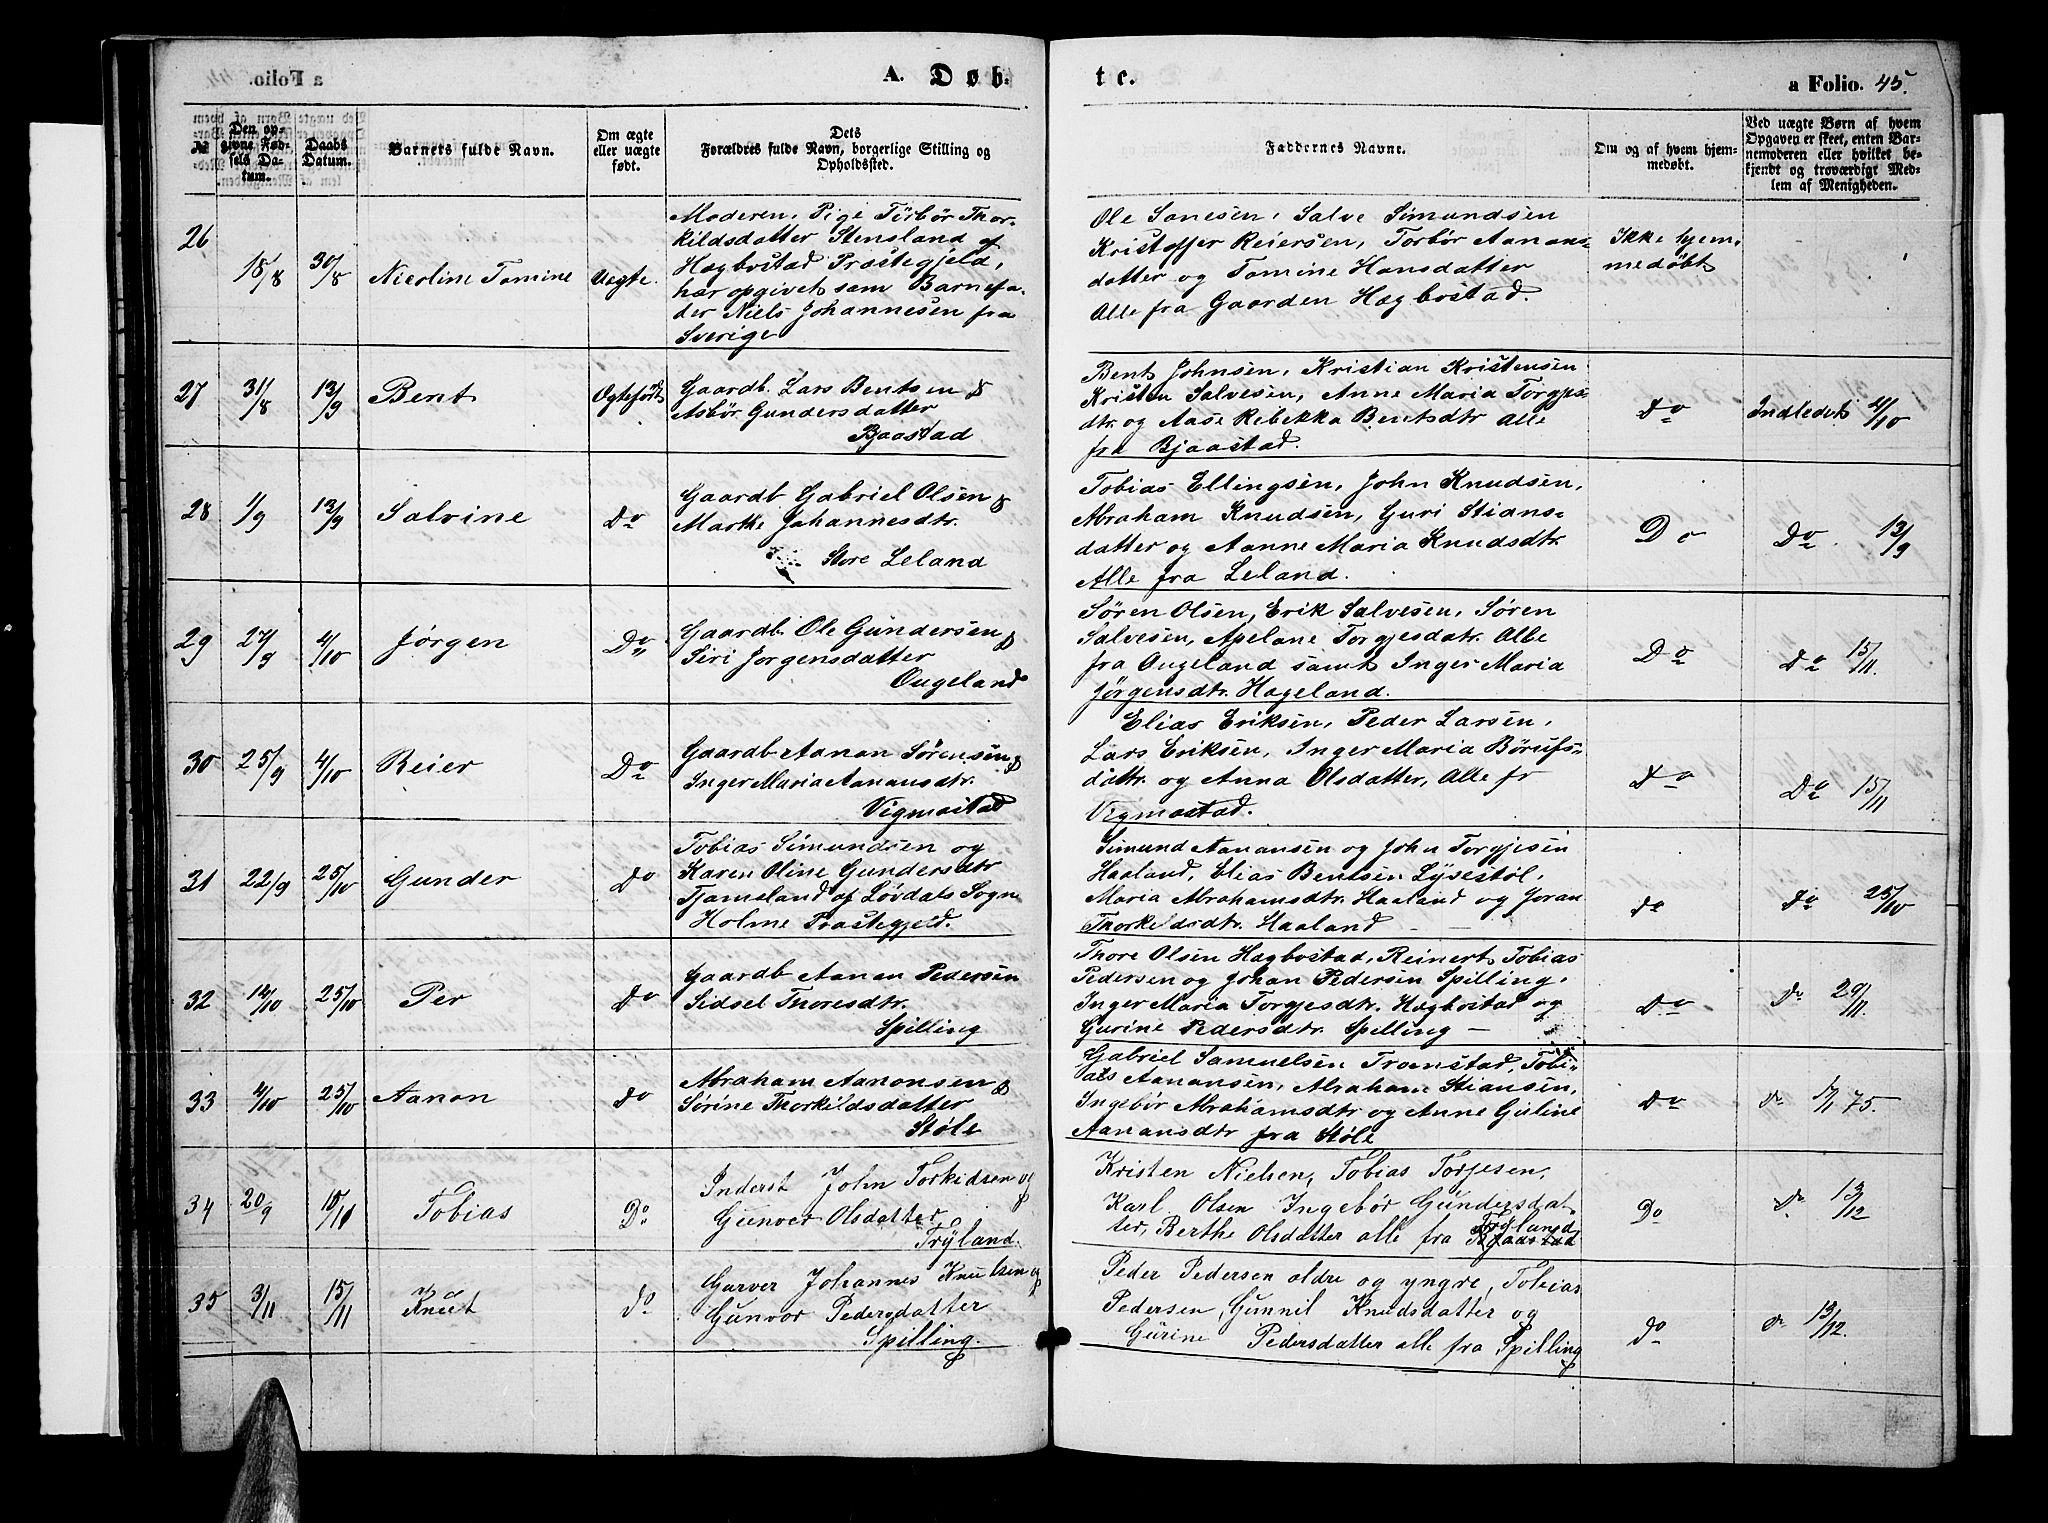 A. Døb-
№
Den op-
givne Fød-
sels Da-
tum.
Daabs
Datum.
Barnets fulde Navn.
Om ægte
eller uægte
født.
Dets
Forældres fulde Navn, borgerlige Stilling og
Opholdssted.
26
18/8
30/8
Nicoline Tomine
Uægte.
Moderen, Pige Törbör Thor-
kildsdatter Stensland af
Hægbostad Præstegjeld,
har opgivet som Barnefa-
der Niels Johannesen fra
Sverige
27
31/8
13/9
Bent
Ægtefödt
Gaardb. Lars Bentsen &
Asbör Gundersdatter
Bjaastad
28
1/9
13/9
Salvine
Do
Gaardb Gabriel Olsen &
Marthe Johannesdtr.
Store Leland
29
27/9
4/10
Jörgen
Do
Gaardb. Ole Gundersen &
Siri Jorgensdatter
Ougeland
30
25/9
4/10
Reier
Do
Gaardb Aanon Sörensen &
Inger Maria Aanansdtr.
Vigmostad
31
22/9
25/10
Gunder
do
Tobias Simundsen og
Karen Oline Gundersdtr
Tjomsland af Lövdals Sogn
Holme Præstegjeld.
32
12/10
25/10
Per
do
Gaardb Aanen Pedersen
Sidsel Thoresdtr.
Spilling
33
4/10
25/10
Aanon
do
Abraham Aanonsen &
Sörine Thorkildsdatter
Støle
34
20/9
15/11
Tobias
Do
Inderst John Torkidsen og
Gunvor Olsdatter
Tryland.
35
3/11
15/11
Knut
do
Garver Johannes Knutsen og
Gunvor Pedersdatter
Spilling.
te.
a Folio. 45.
Faddernes Navne.
Om og af hvem hjem-
medøbt.
Ved uægte Børn af hvem
Opgaven er skeet, enten Bar-
nemoderen eller hvilket be-
kjendt og troværdigt Med-
lem af Menigheden.
Ole Sanesen, Salve Simundsen
Kristoffer Reiersen, Torbör Aanons-
datter og Tomine Hansdatter
Alle fra Gaarden Hægbostad.
Ikke hjem-
medöbt
Bent Johnsen, Kristian Kristensen
Kristen Salvesen, Anne Maria Torgjes-
dtr. og Aase Rebekka Bentsdtr Alle
fra Bjaastad.
Do
Indledet 4/10
Tobias Ellingsen, John Knudsen,
Abraham Knudsen, Guri Stians-
datter og Aanne Maria Knudsdtr.
Alle fra Leland.
Do
Do 13/9
Sören Olsen, Erik Salvesen, Sören
Salvesen, Apelane Torgjesdatr. Alle
fra Ougeland samt Inger Maria
Jörgensdtr. Hageland.
Do
Do 15/11.
Elias Eriksen, Peder Larsen,
Lars Eriksen, Inger Maria Börufs-
datr. og Anna Olsdatter, Alle fr
Vigmostad.
Do
Do 15/11
Simund Aanansen og John Torgjesen
Haaland, Elias Bentsen Lysestöl,
Maria Abrahamsdtr. Haaland og Joran
Thorkeldsdtr. Haaland
do
Do 25/10
Thore Olsen Hægbostad, Reinert Tobias
Pedersen og Johan Pedersen Spilling,
Inger Maria Torgjesdtr. Hægbostad og
Gurine Pedersdtr. Spilling
Do
do 29/11.
Gabriel Samuelsen Tromstad, Tobi-
as Aanansen, Abraham Stiansen,
Ingebör Abrahamsdtr og Anne Guline
Aanansdtr fra Støle
Do
do 1/1 75.
Kristen Nielsen, Tobias Torjesen,
Karl Olsen Ingebör Gundersdat-
ter, Berthe Olsdatter alle fra Tryland
Do
do 13/12
Peder Pedersen oldre og yngre, Tobias
Pedersen, Gunnil Knudsdatter og
Gurine Pedersdatter alle fra Spilling
do
do 13/12.